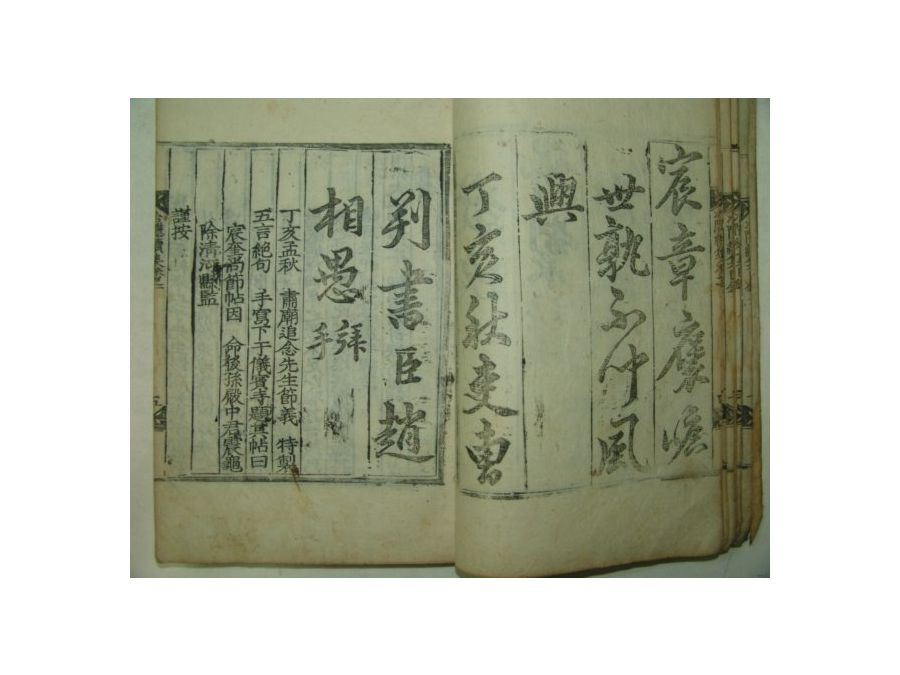 宸章褒崇
世孰不仰風
興
丁亥秋吏曹
判書臣趙
相愚拜
手
丁亥孟秋 肅廟追念先生節義 特製
五言絕句 手寫下于儀賓寺題其帖曰
宸奎高節帖因 命後孫嚴中君震龜
除清河縣監
謹按